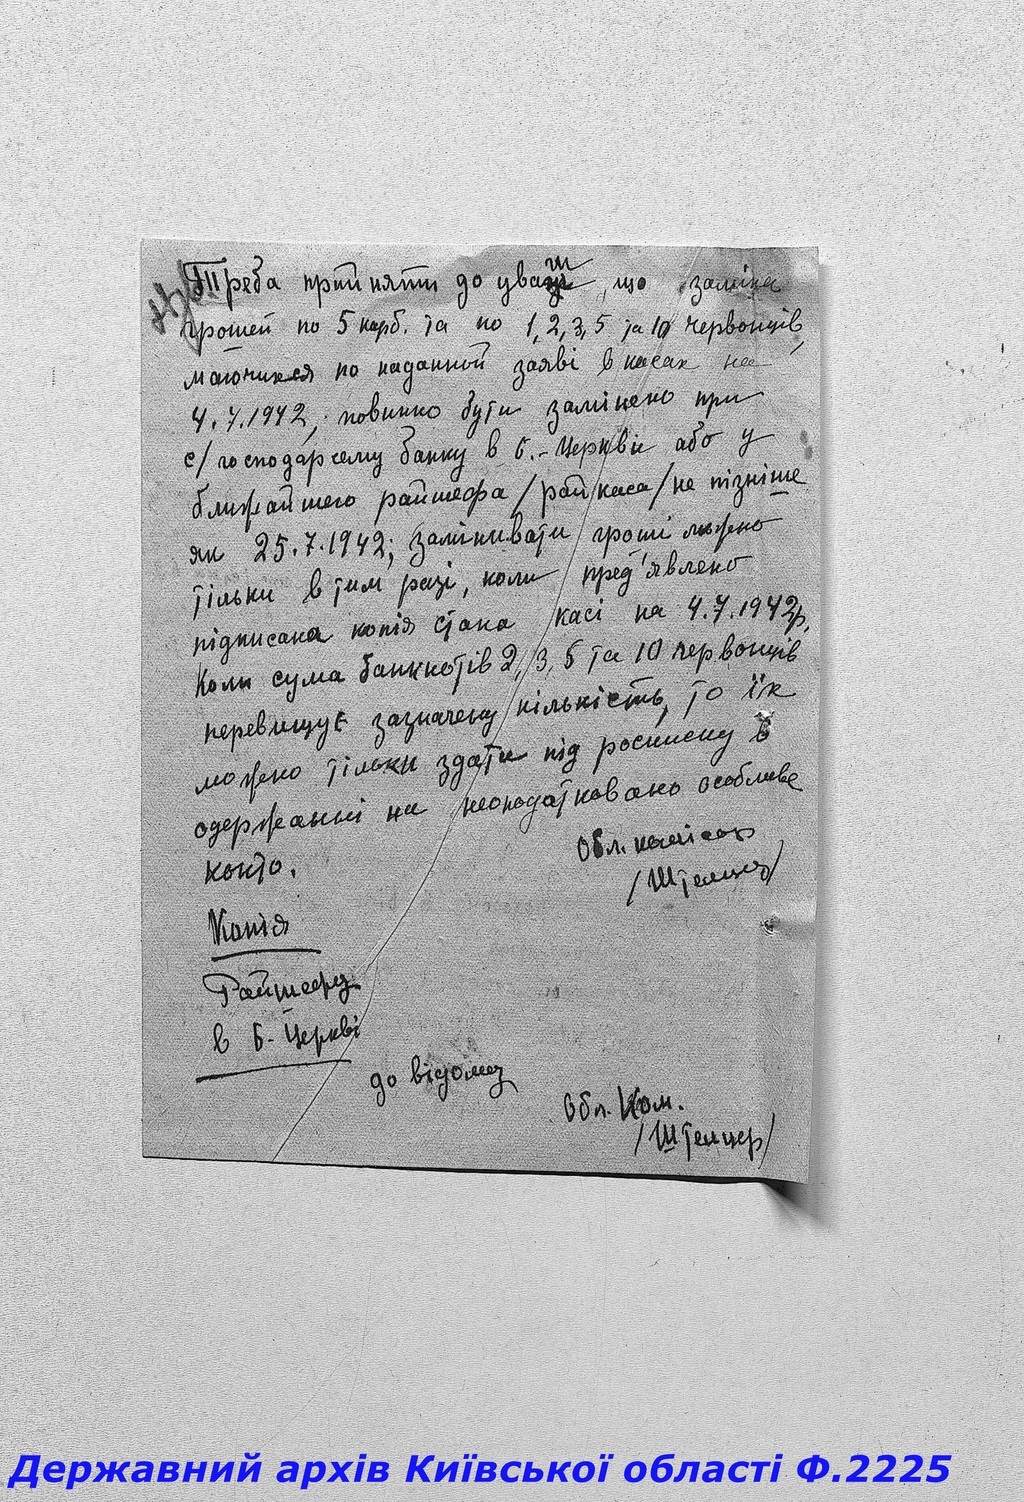 Треба прийняти до уваги, що заміна
грошей по 5 карб. та по 1, 2, 3, 5 та 10 червонців,
маючихся по наданной заяві в касах на
4.7.1942, повинно бути замінено при
с/господарсему банку в Б.-Церкві або у
ближайшего райшефа /райкаса/ не пізніше
як 25.7.1942; замінювати гроші можно
тільки в тим разі, коли пред'явлено
підписана копія стана касі на 4.7.1942р.
Коли сума банкнотів 2, 3, 5 та 10 червонців
перевищує зазначену кількість, то їх
можно тільки здати під росписку в
одержанні на неоподатковано особливе
конто.
Обл. комісар
/Штельцер/
Копія
Райшефу
в Б-Церкві
до відому
Обл. Ком.
/Штельцер/
Державний архів Київської області Ф.2225